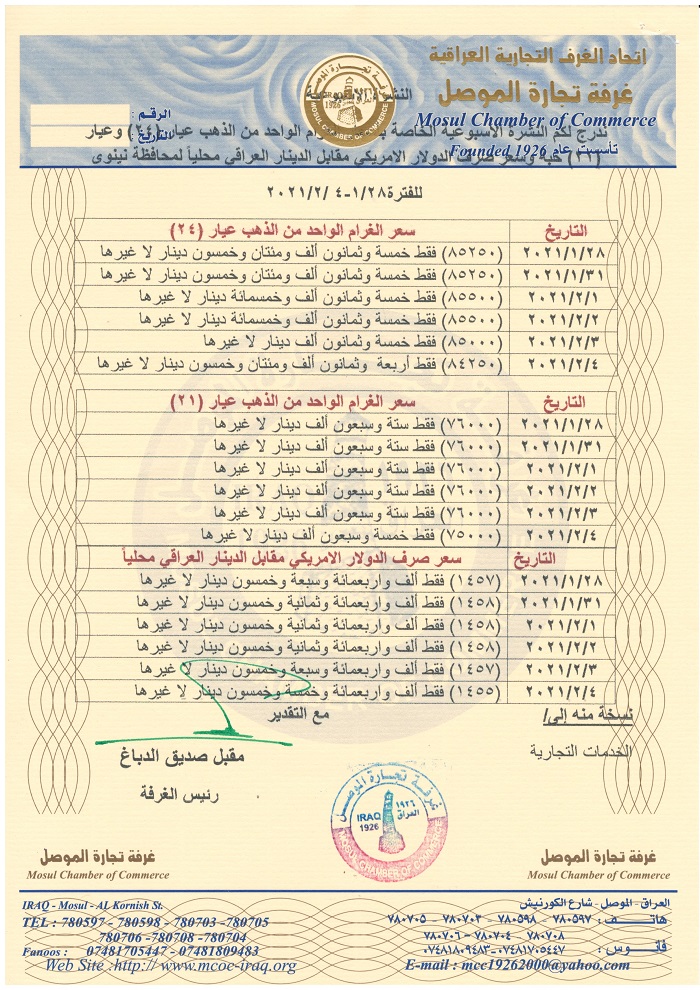 اتحاد الغرف التجارية العراقية
غرفة تجارة الموصل
Mosul Chamber of Commerce
تأسست عام Founded 1926
غرفة تجارة الموصل
IRAQ
1926
MOSUL CHAMBER OF COMMERCE
الرقم :
التاريخ :
ندرج لكم النشرة الاسبوعية الخاصة الواحد من الذهب عيار (٢٤) وعيار
(٢١) حبة وسعر صرف الدولار الامريكي مقابل الدينار العراقي محلياً لمحافظة نينوى
للفترة ١/٢٨-٢٠٢١/٢/٤
التاريخ سعر الغرام الواحد من الذهب عيار (٢٤)
٢٠٢١/١/٢٨ (٨٥٢٥٠) فقط خمسة وثمانون ألف ومئتان وخمسون دينار لا غيرها
٢٠٢١/١/٣١ (٨٥٢٥٠) فقط خمسة وثمانون ألف ومئتان وخمسون دينار لا غيرها
٢٠٢١/٢/١ (٨٥٥٠٠) فقط خمسة وثمانون ألف وخمسمائة دينار لا غيرها
٢٠٢١/٢/٢ (٨٥٥٠٠) فقط خمسة وثمانون ألف وخمسمائة دينار لا غيرها
٢٠٢١/٢/٣ (٨٥٠٠٠) فقط خمسة وثمانون ألف دينار لا غيرها
٢٠٢١/٢/٤ (٨٤٢٥٠) فقط أربعة وثمانون ألف ومئتان وخمسون دينار لا غيرها
التاريخ سعر الغرام الواحد من الذهب عيار (٢١)
٢٠٢١/١/٢٨ (٧٦٠٠٠) فقط ستة وسبعون ألف دينار لا غيرها
٢٠٢١/١/٣١ (٧٦٠٠٠) فقط ستة وسبعون ألف دينار لا غيرها
٢٠٢١/٢/١ (٧٦٠٠٠) فقط ستة وسبعون ألف دينار لا غيرها
٢٠٢١/٢/٢ (٧٦٠٠٠) فقط ستة وسبعون ألف دينار لا غيرها
٢٠٢١/٢/٣ (٧٦٠٠٠) فقط ستة وسبعون ألف دينار لا غيرها
٢٠٢١/٢/٤ (٧٥٠٠٠) فقط خمسة وسبعون ألف دينار لا غيرها
التاريخ سعر صرف الدولار الامريكي مقابل الدينار العراقي محلياً
٢٠٢١/١/٢٨ (١٤٥٧) فقط ألف واربعمائة وسبعة وخمسون دينار لا غيرها
٢٠٢١/١/٣١ (١٤٥٨) فقط ألف واربعمائة وثمانية وخمسون دينار لا غيرها
٢٠٢١/٢/١ (١٤٥٨) فقط ألف واربعمائة وثمانية وخمسون دينار لا غيرها
٢٠٢١/٢/٢ (١٤٥٨) فقط ألف واربعمائة وثمانية وخمسون دينار لا غيرها
٢٠٢١/٢/٣ (١٤٥٧) فقط ألف واربعمائة وسبعة وخمسون دينار لا غيرها
٢٠٢١/٢/٤ (١٤٥٥) فقط ألف واربعمائة وخمسة وخمسون دينار لا غيرها
مع التقدير
نسخة منه إلى/
الخدمات التجارية
مقبل صديق الدباغ
رئيس الغرفة
غرفة تجارة الموصل
IRAQ ١٩٢٦
1926 العراق
MOSUL CHAMBER OF COMMERCE
غرفة تجارة الموصل
Mosul Chamber of Commerce
غرفة تجارة الموصل
Mosul Chamber of Commerce
العراق - الموصل - شارع الكورنيش
هاتف : ٧٨٠٥٩٧ - ٧٨٠٥٩٨ - ٧٨٠٧٠٣ - ٧٨٠٧٠٥
٧٨٠٧٠٨ - ٧٨٠٧٠٤ - ٧٨٠٧٠٦
فانوس : ٠٧٤٨١٧٠٥٤٤٧-٠٧٤٨١٨٠٩٤٨٣
E-mail : mcc19262000@yahoo.com
IRAQ - Mosul - AL Kornish St.
TEL : 780597 - 780598 - 780703 -780705
780706 -780708 -780704
Fanoos : 07481705447 - 07481809483
Web Site :http:// www.mcoc-iraq.org